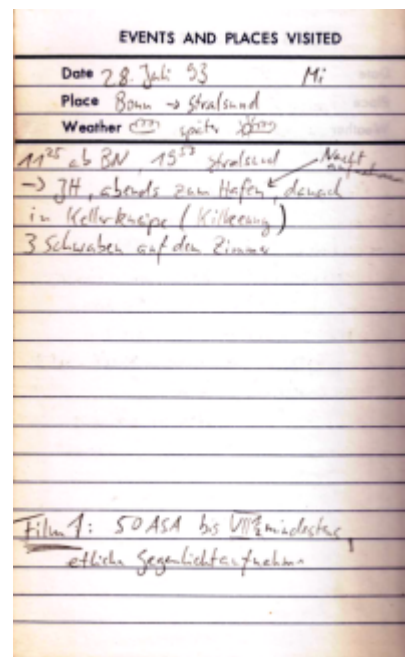 EVENTS AND PLACES VISITED
Date 28. Juli 93 Mi
Place Bonn → Stralsund
Weather später
11²⁵ ab BN, 19⁵³ Stralsund Nachtaufnahmen
→ JH, abends zum Hafen, danach
in Kellerkneipe (Kilkenny)
3 Schwaben auf dem Zimmer
Film 1: 50 ASA bis mindestens,
etliche Gegenlichtaufnahmen